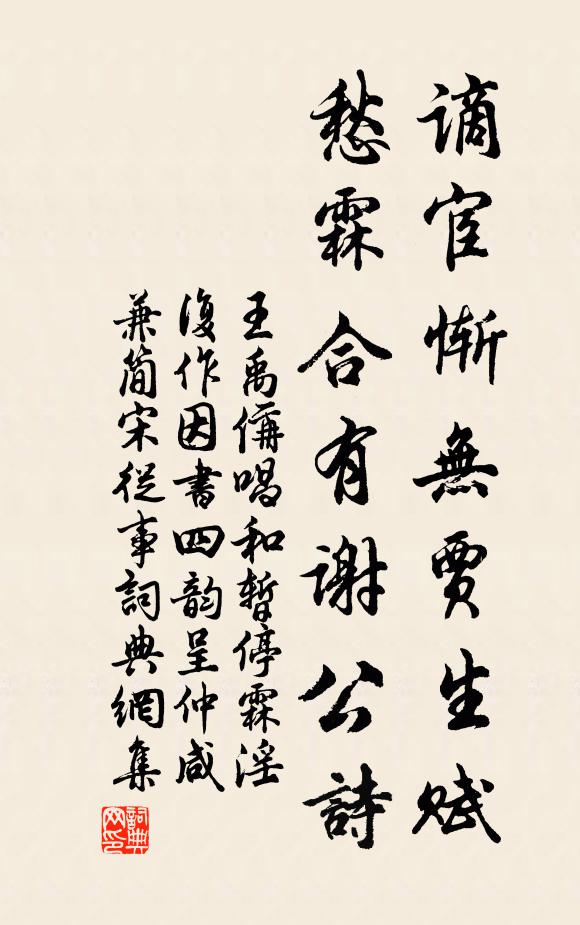 謫宦慚無賈生賦
愁霖合有謝公詩
王禹偁唱和暫停霖淫
復作因書四韵呈仲咸
兼簡宋從事詞典網集
詞典
网印